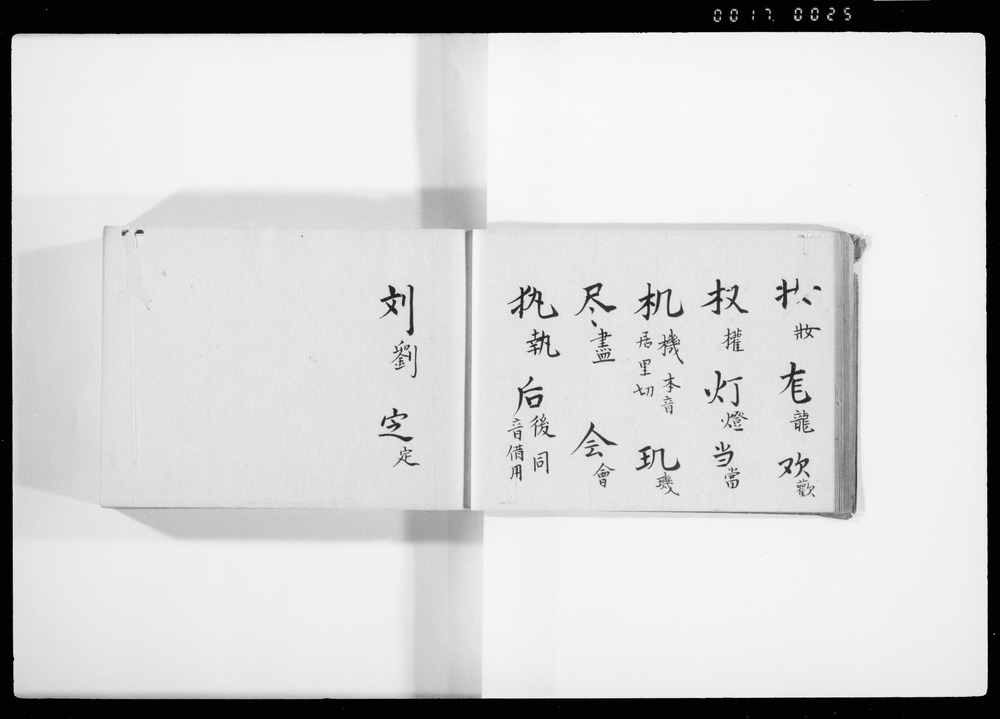 0017. 0025
妝 龍 欢 歡
权 權 灯 燈 当 當
机 機 本音 居里切 玑 璣
尽 盡 会 會
执 執 后 後同音借用
刘 劉 㝎 定